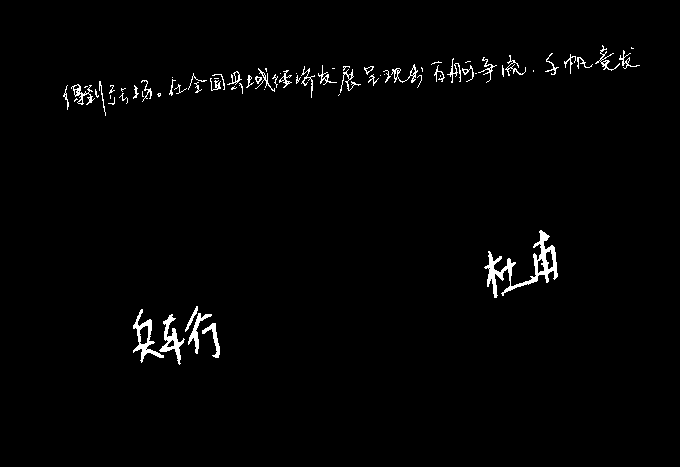 得到弘扬。在全国县域经济发展呈现出百舸争流、千帆竞发
杜甫
兵车行